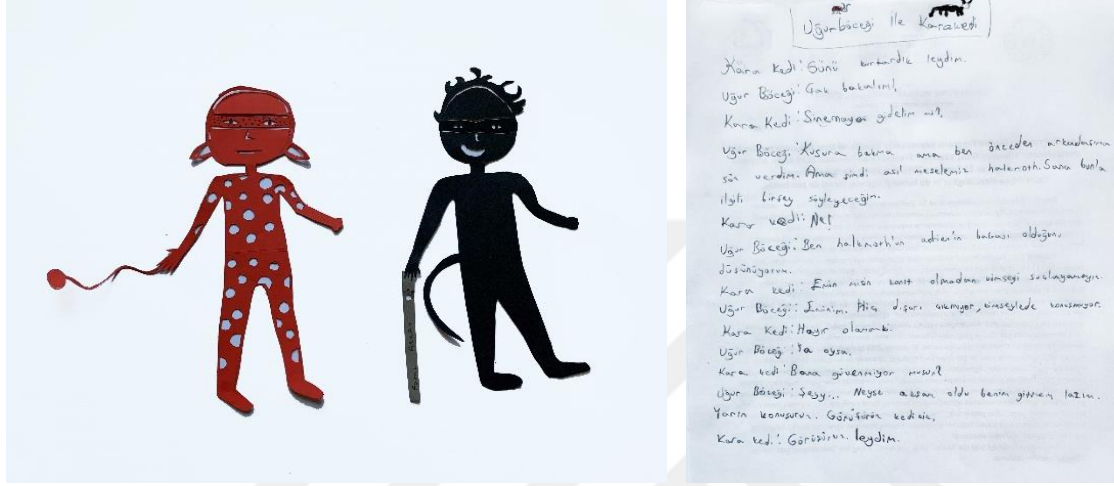 Uğurböceği ile Karakedi
Kara kedi: Günü kurtardık leydim.
Uğur Böceği: Çak bakalım!,
Kara Kedi: Sinemaya gidelim mi?,
Uğur Böceği: Kusura bakma ama ben önceden arkadaşıma
söz verdim. Ama şimdi asıl meselemiz halkmoth. Sana bunla
ilgili birşey söyleyeceğim.
Kara kedi: Ne!
Uğur Böceği: Ben halkmoth'un adrien'in babası olduğunu
düşünüyorum.
Kara kedi: Emin misin kanıt olmadan kimseyi suçlayamayız.
Uğur Böceği: Eminim. Hiç dışarı çıkmıyor, kimseylede konuşmuyor.
Kara Kedi: Hayır olamaz.
Uğur Böceği: Ya oysa.
Kara kedi: Bana güvenmiyor musun?
Uğur Böceği: Şeyy... Neyse akşam oldu benim gitmem lazım.
Yarın konuşuruz. Görüşürüz kedicik.
Kara kedi: Görüşürüz leydim.